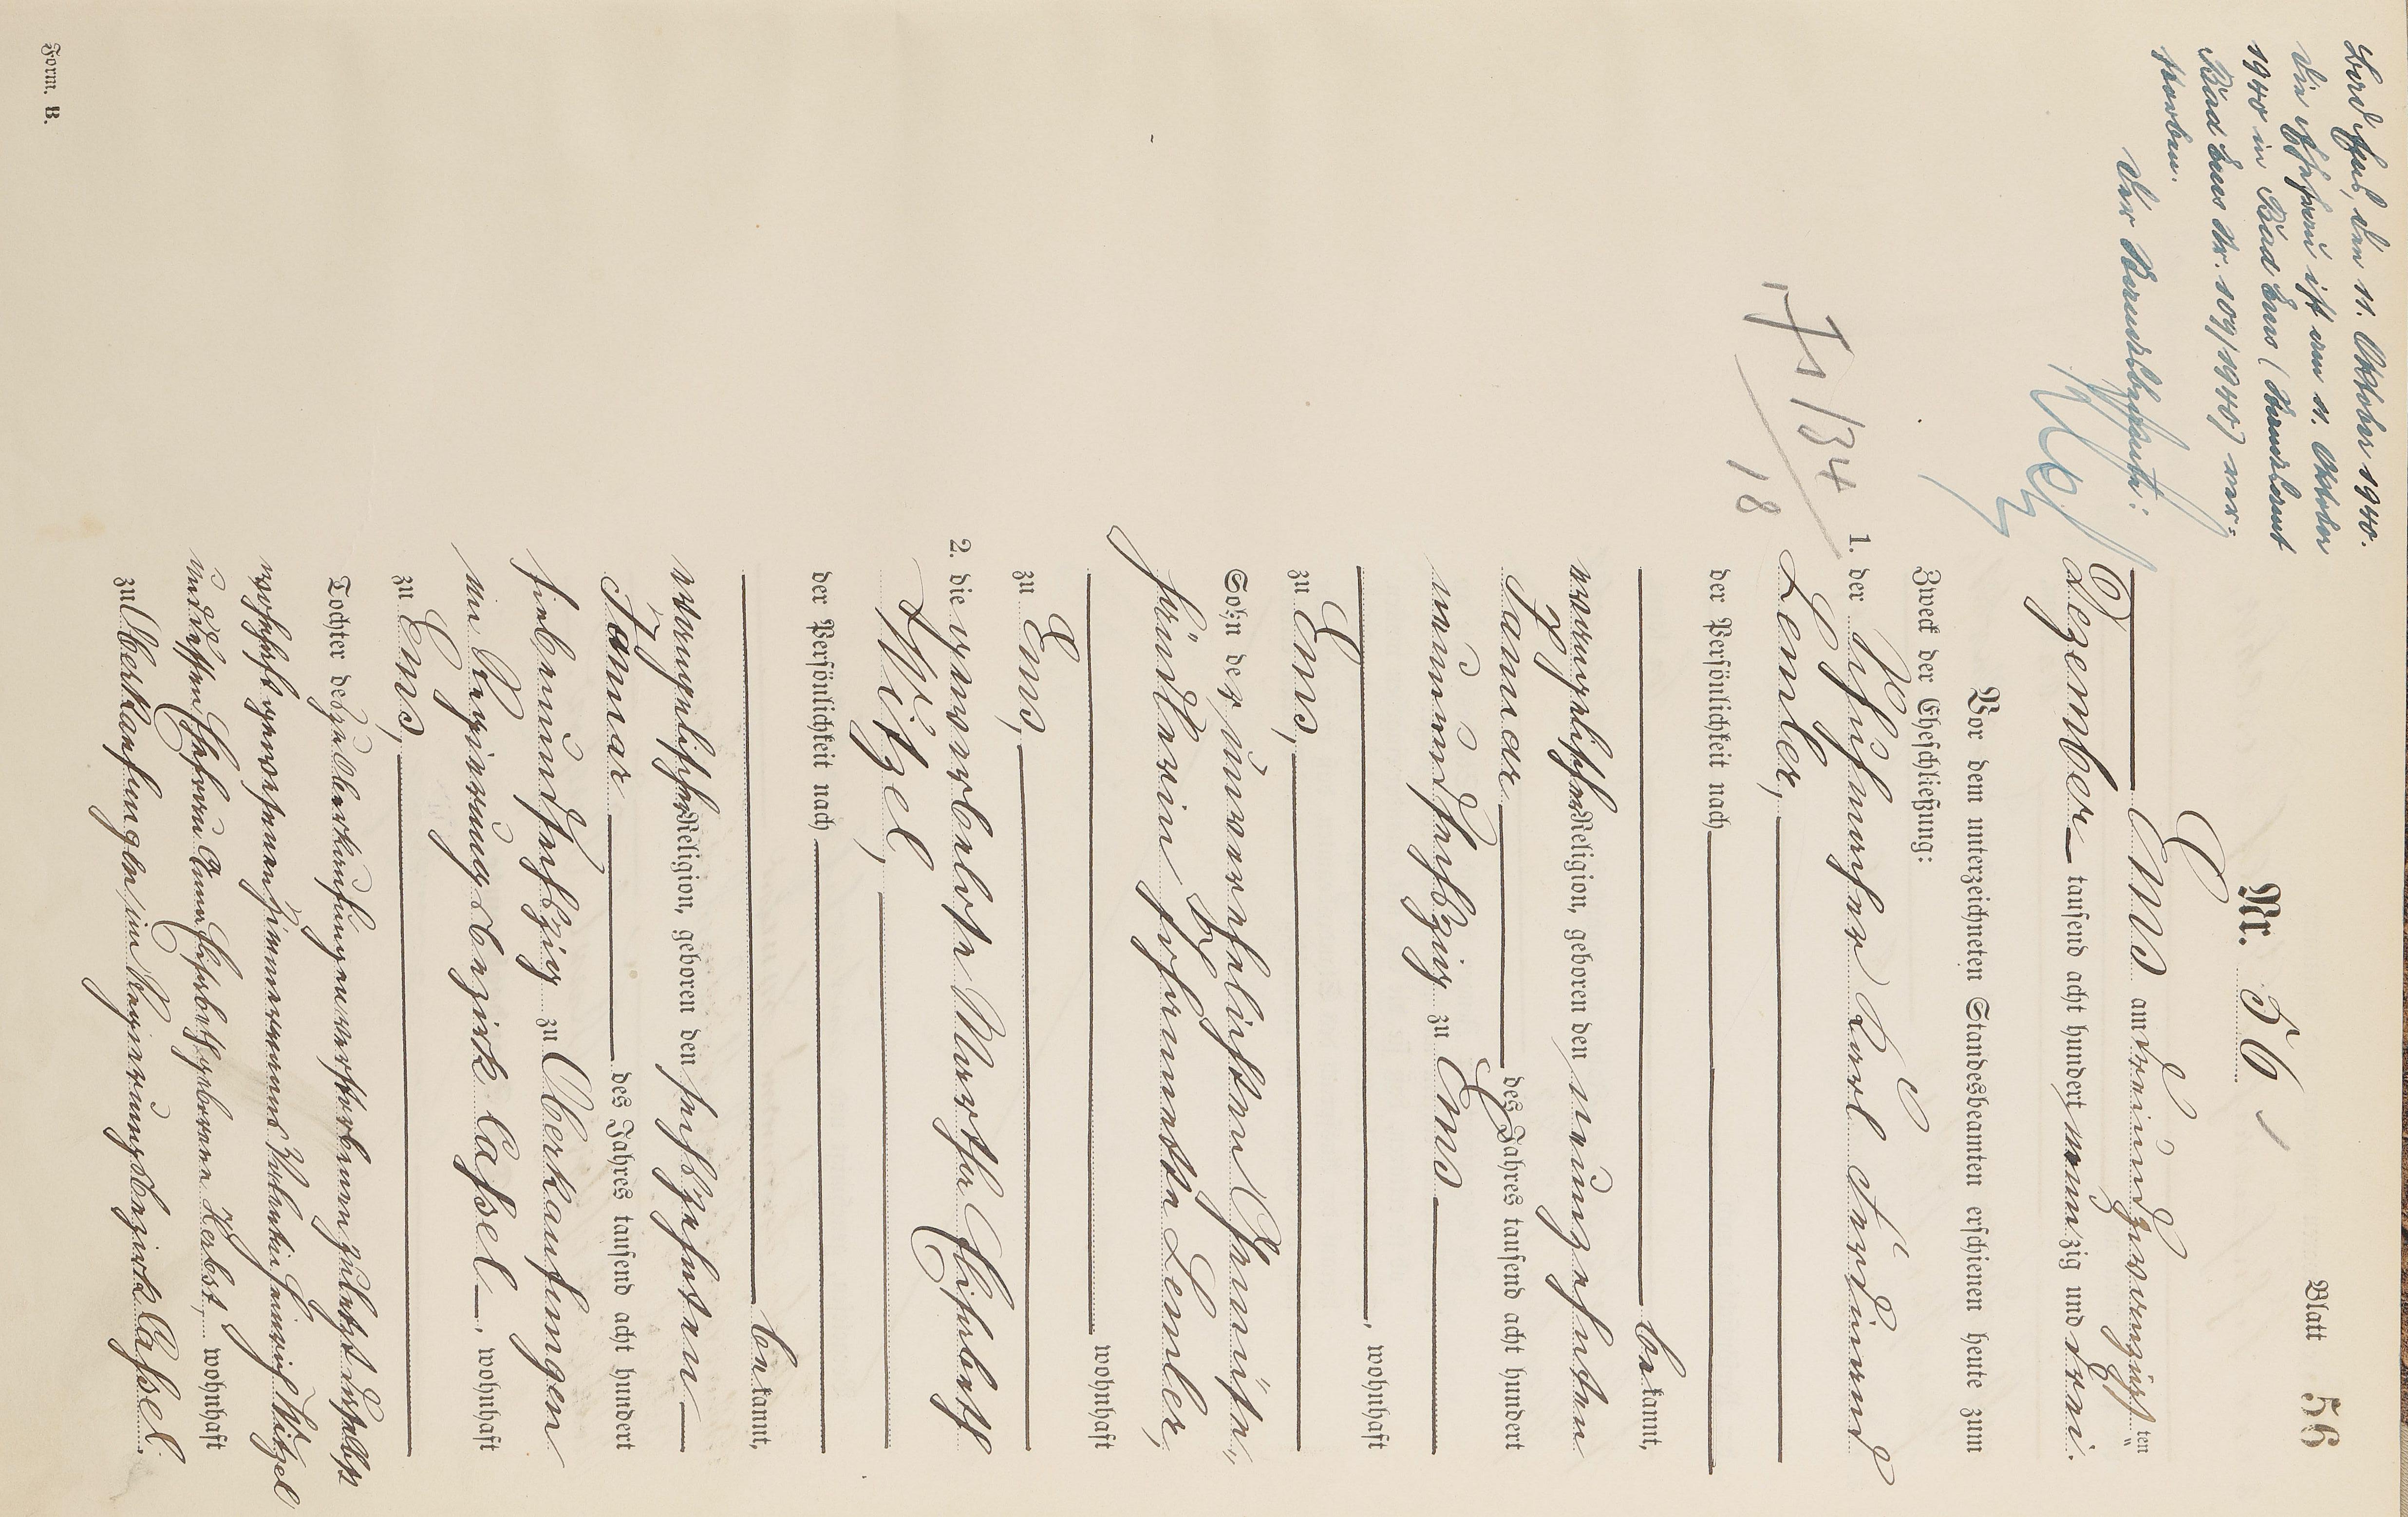 Blatt 56
Nr. 56
Ems am dreiundzwanzigsten
Dezember tausend acht hundert neunzig und drei.
Vor dem unterzeichneten Standesbeamten erschienen heute zum
Zweck der Eheschließung:
1. der Schuhmacher Karl Ferdinand
Lemler,
der Persönlichkeit nach
bekannt,
evangelischer Religion, geboren den neunzehnten
Januar des Jahres tausend acht hundert
neunundsechszig zu Ems
, wohnhaft
zu Ems,
Sohn der unverehelichten Gemüse-
händlerin Johannette Lemler,
wohnhaft
zu Ems,
2. die gewerblose Martha Elisabeth
Witzel,
der Persönlichkeit nach
bekannt,
evangelischer Religion, geboren den sechszehnten
Januar des Jahres tausend acht hundert
siebenundsechszig zu Oberkaufungen
im Regierungsbezirk Cassel, wohnhaft
zu Ems,
Tochter des zu Oberkaufungen verstorbenen zuletzt daselbst
wohnhaft gewesenen Zimmermanns Valentin Heinrich Witzel
und dessen Ehefrau Anna Elisabeth geborene Herbst, wohnhaft
zu Oberkaufungen im Regierungsbezirk Cassel.
Bad Ems, den 11. Oktober 1940.
Die Ehefrau ist am 11. Oktober
1940 in Bad Ems (Standesamt
Bad Ems Nr. 109/1940) ver-
storben.
Der Standesbeamte:
1/34
18
Form. B.